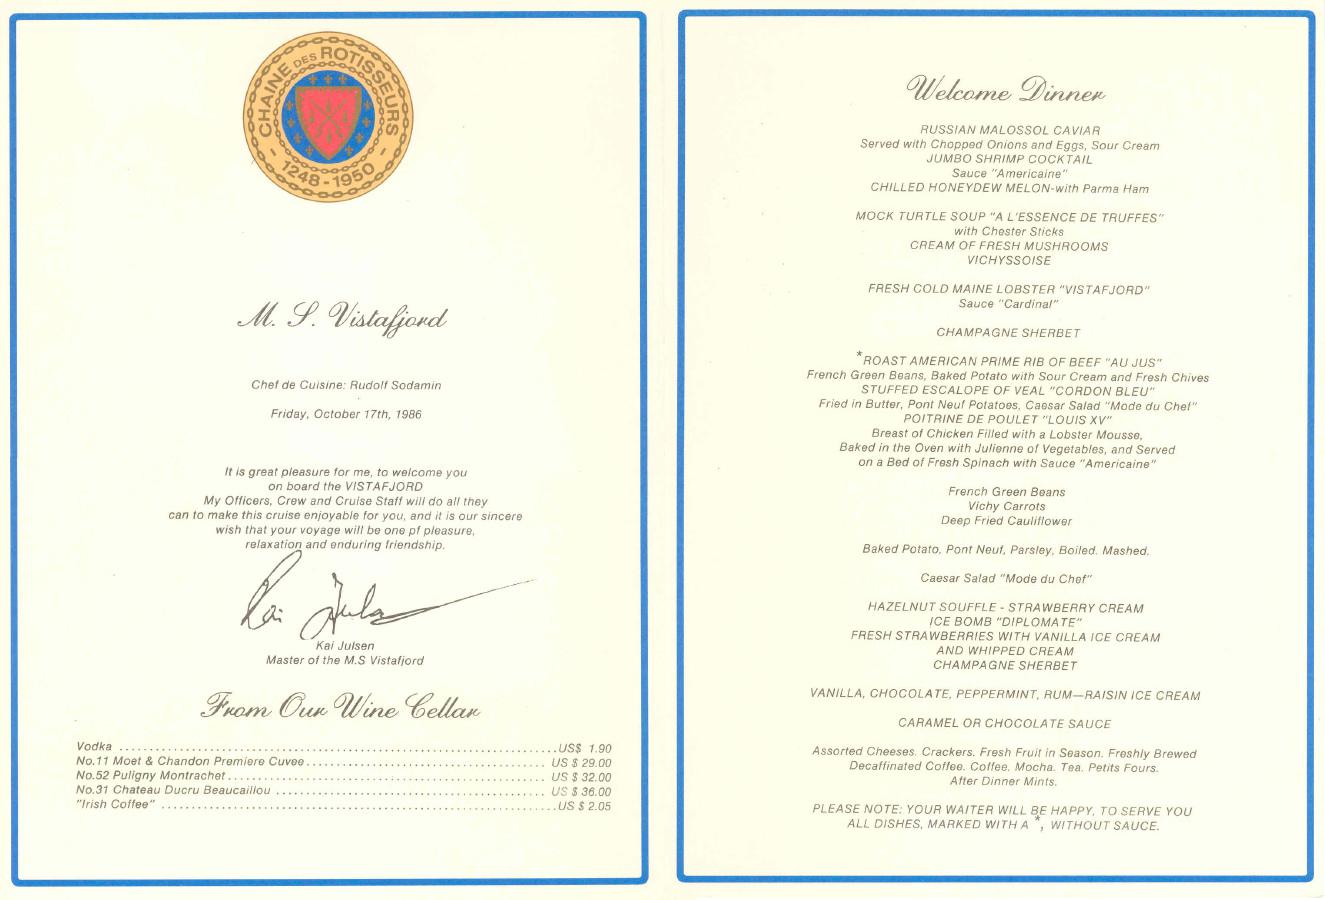 CHAINE DES ROTISSEURS
- 1248 - 1950 -
M. S. Vistafjord
Chef de Cuisine: Rudolf Sodamin
Friday, October 17th, 1986
It is great pleasure for me, to welcome you
on board the VISTAFJORD
My Officers, Crew and Cruise Staff will do all they
can to make this cruise enjoyable for you, and it is our sincere
wish that your voyage will be one pf pleasure,
relaxation and enduring friendship.
Kai Julsen
Kai Julsen
Master of the M.S Vistafjord
From Our Wine Cellar
Vodka ..........................................................US$ 1.90
No.11 Moet & Chandon Premiere Cuvee.................................. US $ 29.00
No.52 Puligny Montrachet.............................................. US $ 32.00
No.31 Chateau Ducru Beaucaillou ....................................... US $ 36.00
"Irish Coffee" .........................................................US $ 2.05
Welcome Dinner
RUSSIAN MALOSSOL CAVIAR
Served with Chopped Onions and Eggs, Sour Cream
JUMBO SHRIMP COCKTAIL
Sauce "Americaine"
CHILLED HONEYDEW MELON-with Parma Ham
MOCK TURTLE SOUP "A L'ESSENCE DE TRUFFES"
with Chester Sticks
CREAM OF FRESH MUSHROOMS
VICHYSSOISE
FRESH COLD MAINE LOBSTER "VISTAFJORD"
Sauce "Cardinal"
CHAMPAGNE SHERBET
*ROAST AMERICAN PRIME RIB OF BEEF "AU JUS"
French Green Beans, Baked Potato with Sour Cream and Fresh Chives
STUFFED ESCALOPE OF VEAL "CORDON BLEU"
Fried in Butter, Pont Neuf Potatoes, Caesar Salad "Mode du Chef"
POITRINE DE POULET "LOUIS XV"
Breast of Chicken Filled with a Lobster Mousse,
Baked in the Oven with Julienne of Vegetables, and Served
on a Bed of Fresh Spinach with Sauce "Americaine"
French Green Beans
Vichy Carrots
Deep Fried Cauliflower
Baked Potato, Pont Neuf, Parsley, Boiled. Mashed.
Caesar Salad "Mode du Chef"
HAZELNUT SOUFFLE - STRAWBERRY CREAM
ICE BOMB "DIPLOMATE"
FRESH STRAWBERRIES WITH VANILLA ICE CREAM
AND WHIPPED CREAM
CHAMPAGNE SHERBET
VANILLA, CHOCOLATE, PEPPERMINT, RUM—RAISIN ICE CREAM
CARAMEL OR CHOCOLATE SAUCE
Assorted Cheeses. Crackers. Fresh Fruit in Season. Freshly Brewed
Decaffinated Coffee. Coffee. Mocha. Tea. Petits Fours.
After Dinner Mints.
PLEASE NOTE: YOUR WAITER WILL BE HAPPY, TO SERVE YOU
ALL DISHES, MARKED WITH A *, WITHOUT SAUCE.